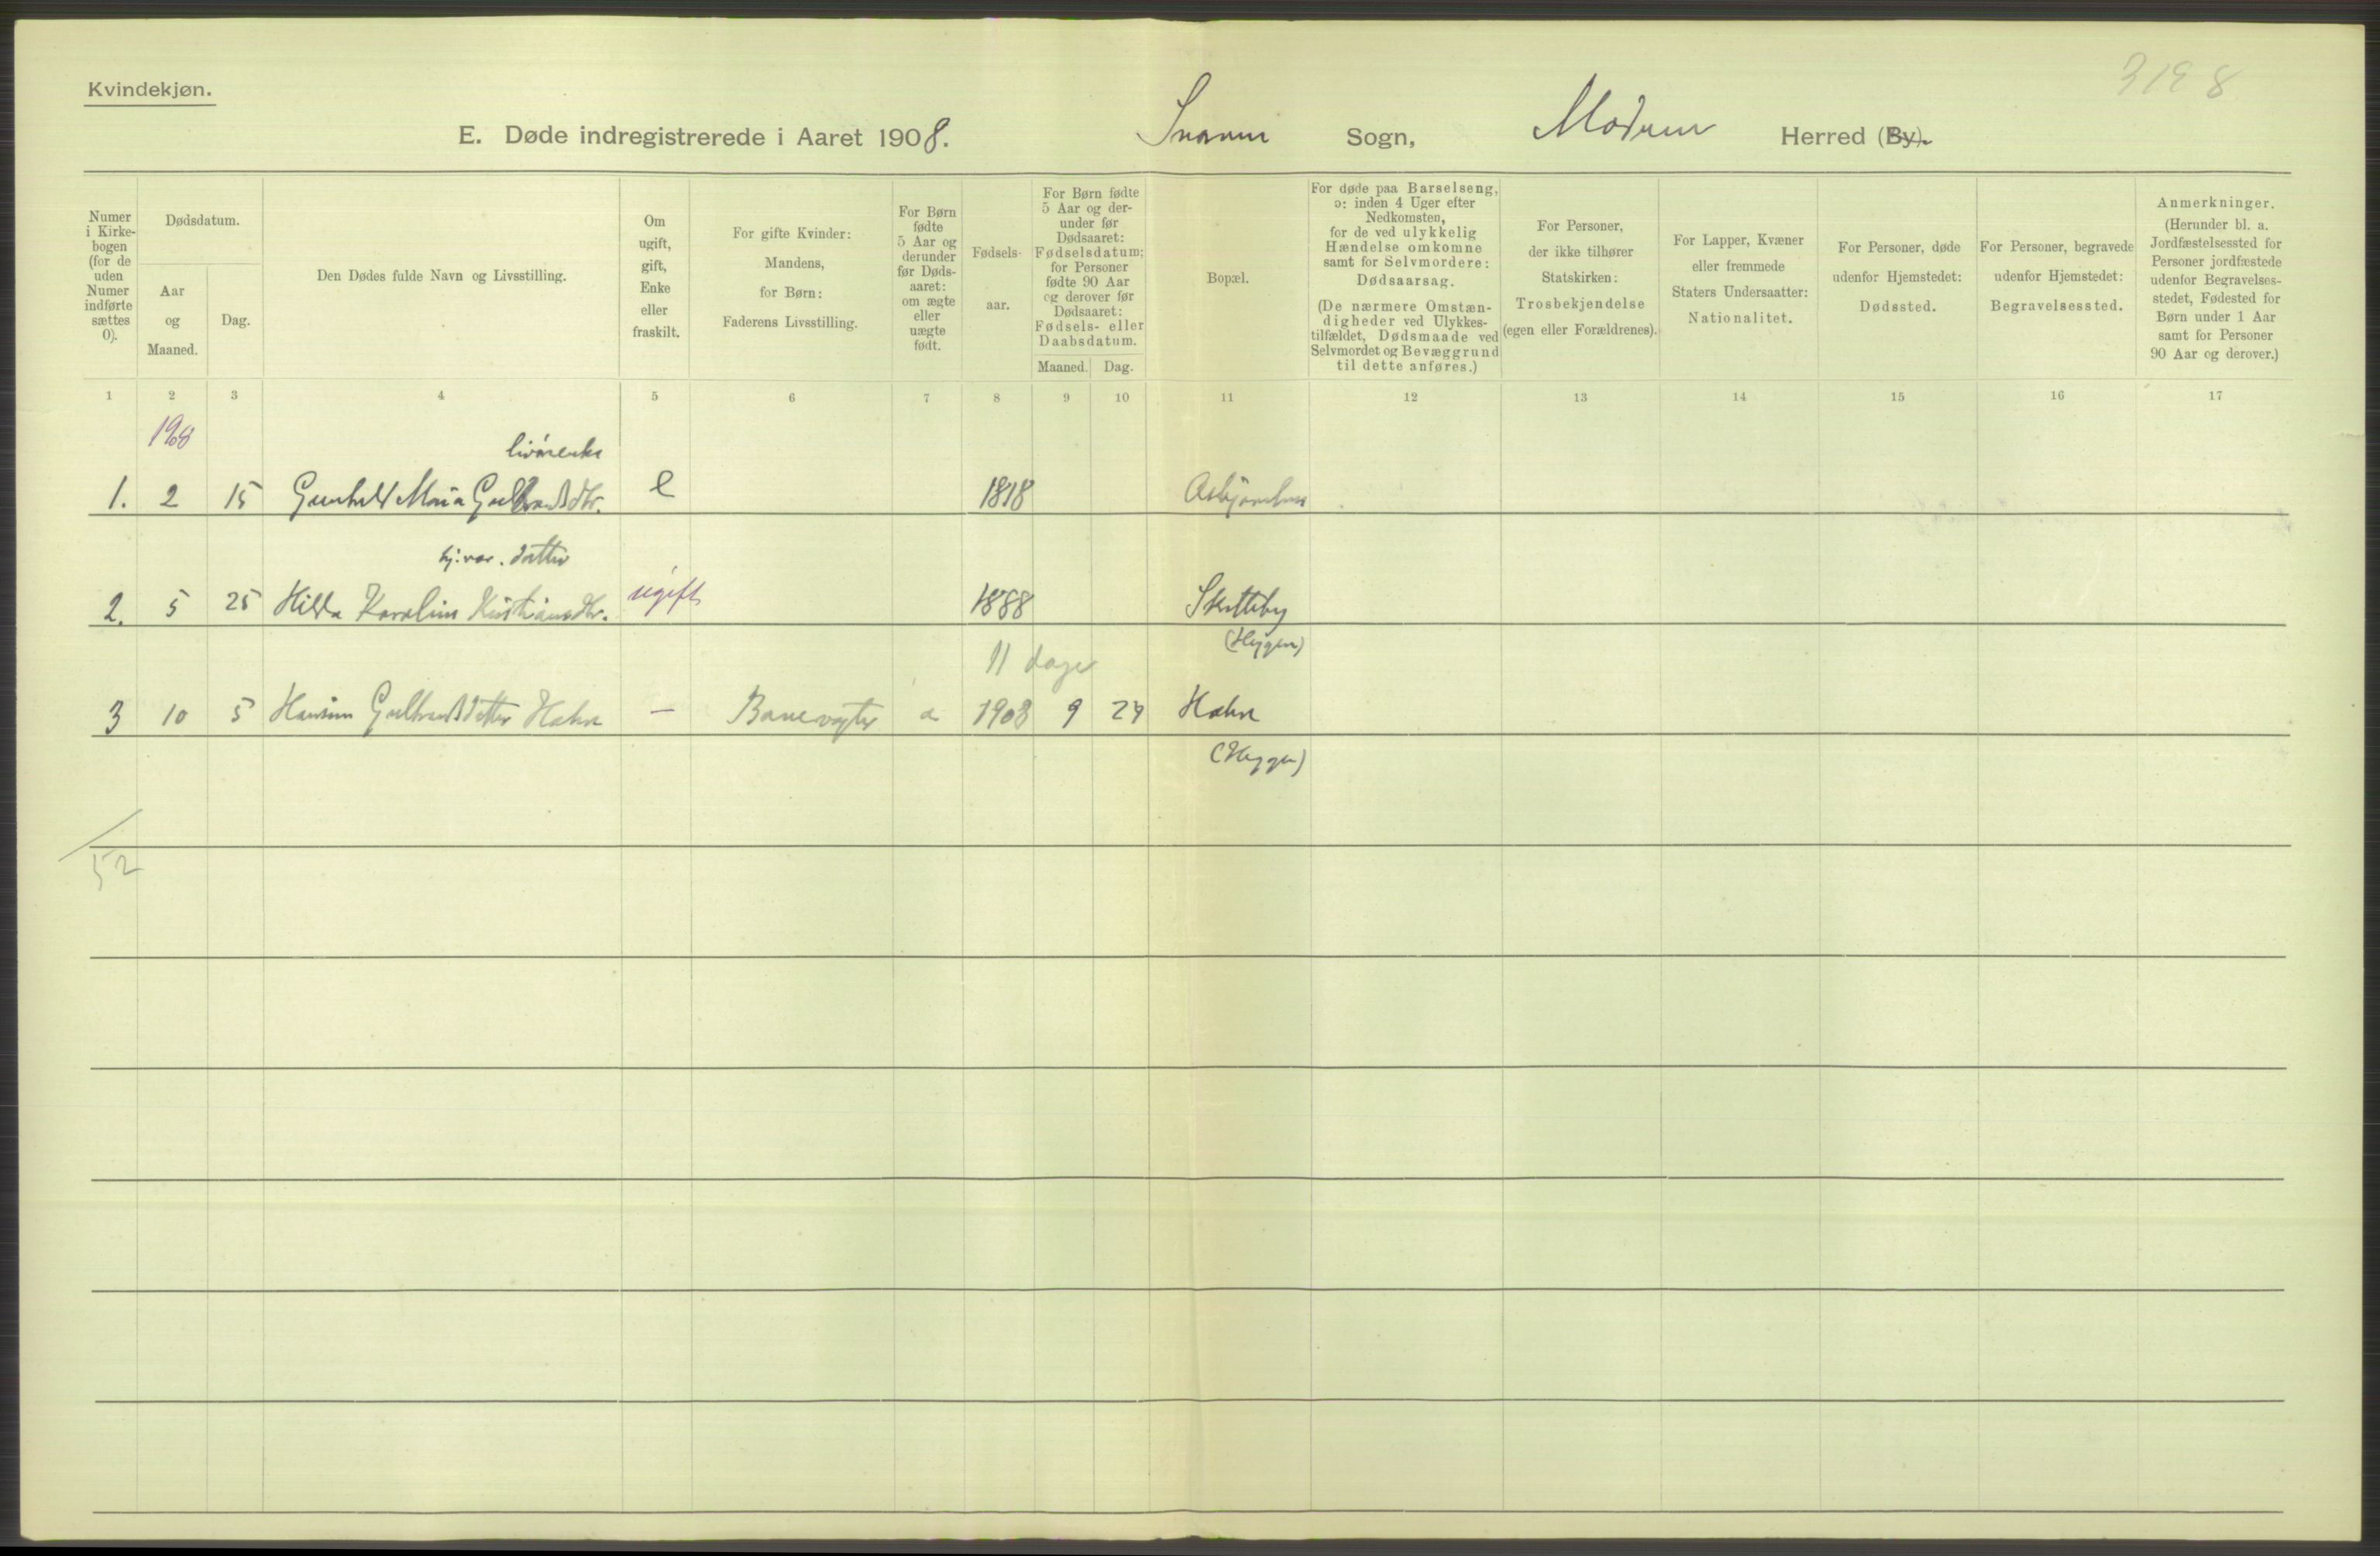 Kvindekjøn.
3198
E. Døde indregistrerede i Aaret 1908. Snarum Sogn, Modum Herred (By).
Numer i Kirkebogen (for de uden Numer indførte sættes 0).
Dødsdatum.
Aar og Maaned.
Dag.
Den Dødes fulde Navn og Livsstilling.
Om ugift, gift, Enke eller fraskilt.
For gifte Kvinder: Mandens, for Børn: Faderens Livsstilling.
For Børn fødte 5 Aar og derunder før Dødsaaret: om ægte eller uægte født.
Fødselsaar.
For Børn fødte 5 Aar og derunder før Dødsaaret: Fødselsdatum; for Personer fødte 90 Aar og derover før Dødsaaret: Fødsels- eller Daabsdatum.
Maaned. Dag.
Bopæl.
For døde paa Barselseng, ɔ: inden 4 Uger efter Nedkomsten, for de ved ulykkelig Hændelse omkomne samt for Selvmordere: Dødsaarsag.
(De nærmere Omstændigheder ved Ulykkestilfældet, Dødsmaade ved Selvmordet og Bevæggrund til dette anføres.)
For Personer, der ikke tilhører Statskirken: Trosbekjendelse (egen eller Forældrenes).
For Lapper, Kvæner eller fremmede Staters Undersaatter: Nationalitet.
For Personer, døde udenfor Hjemstedet: Dødssted.
For Personer, begravede udenfor Hjemstedet: Begravelsessted.
Anmerkninger.
(Herunder bl. a. Jordfæstelsessted for Personer jordfæstede udenfor Begravelsesstedet, Fødested for Børn under 1 Aar samt for Personer 90 Aar og derover.)
1 2 3 4 5 6 7 8 9 10 11 12 13 14 15 16 17
1908
1. 2 15 Gunhild Maria Gulbrandsdtr. e 1818
hj.vær. datter
2. 5 25 Hilda Karoline Kristiansdtr. ugift 1888
(Heggen)
11 dage
3 10 5 Gulbrandsdatter Hahn — Banevogter 1908 9 24 Hahn
(Heggen)
52